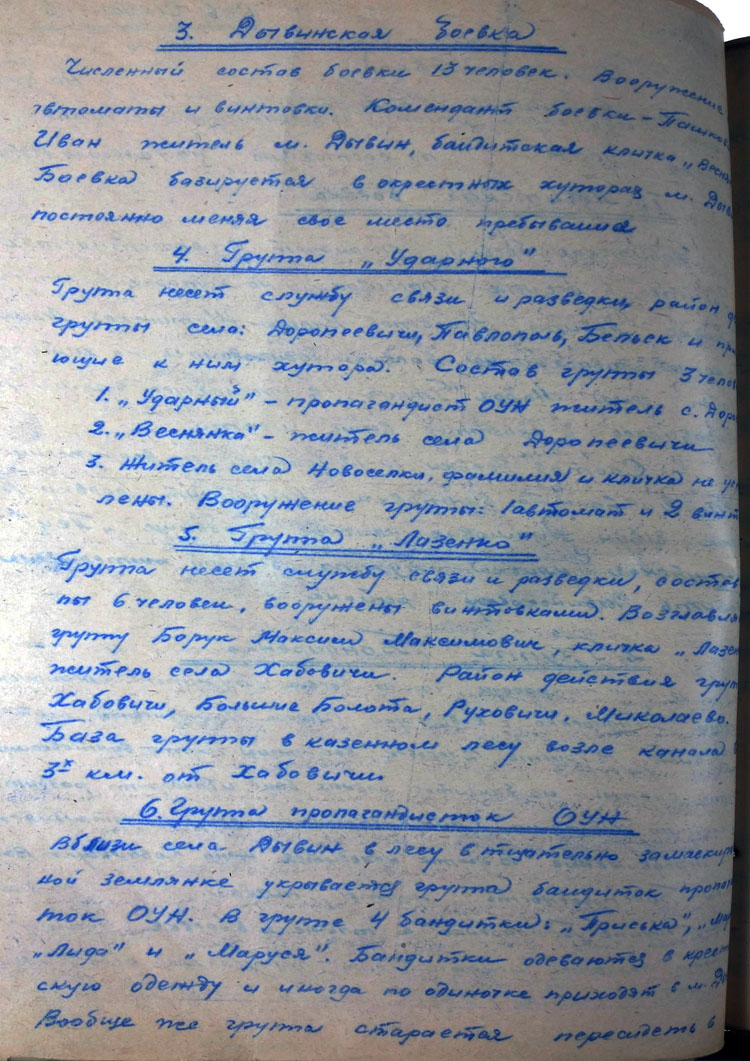 3. Дывинская боевка
Численный состав боевки 13 человек. Вооружение
автоматы и винтовки. Комендант боевки – Пашков
Иван житель м. Дывин, бандитская кличка „Весня
Боевка базируется в окрестных хуторах м. Дыв
постоянно меняя свое место пребывания
4. Группа „Ударного"
Группа несет службу связи и разведки, район д
группы села: Доропеевичи, Павлополь, Бельск и при
ющие к ним хутора. Состав группы 3 челов
1. „Ударный" – пропагандист ОУН житель с. Доро
2. „Веснянка" – житель села Доропеевичи
3. Житель села Новоселки, фамилия и кличка не ус
лены. Вооружение группы: 1 автомат и 2 винт
5. Группа „Лазенко"
Группа несет службу связи и разведки, состав
пы 6 человек, вооружены винтовками. Возглавля
группу Борук Максим Максимович, кличка „Лазен
житель села Хабовичи. Район действия груп
Хабовичи, Большие Болота, Руховичи, Миколаево.
База группы в казенном лесу возле канала
3х км. от Хабовичи
6. Группа пропагандисток ОУН
Вблизи села Дывин в лесу в тщательно замаскиро
ной землянке укрывается группа бандиток пропаг
ток ОУН. В группе 4 бандитки: „Приська", „Мар
„Лида" и „Маруся". Бандитки одеваются в крест
скую одежду и иногда по одиночке приходят в м. Ды
Вообще же группа старается пересидеть в